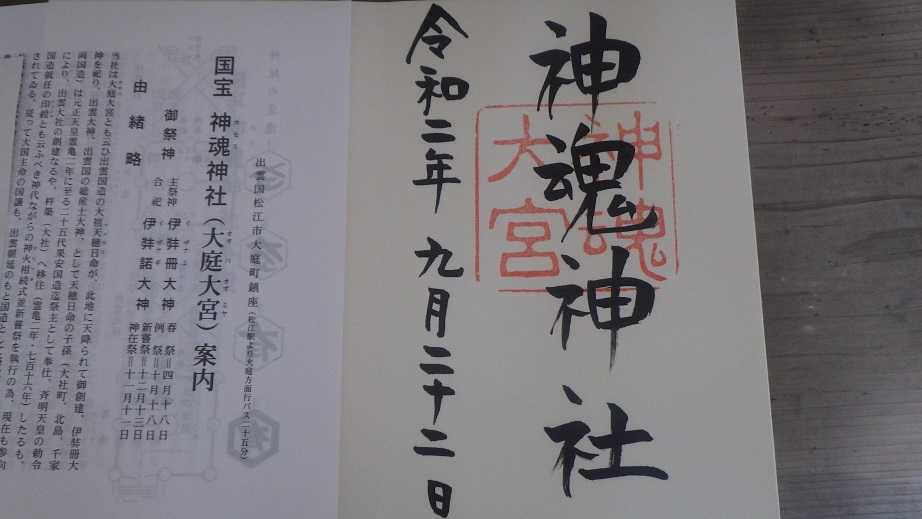 神魂神社
神魂
大宮
令和二年 九月二十二日
出雲国松江市大庭町鎮座(松江駅より大庭方面行バス二十五分)
国宝 神魂神社(大庭大宮)案内
御祭神
主祭神 伊弉冊大神
合祀 伊弉諾大神
春祭=四月十八日
例祭=十月十八日
新嘗祭=十二月十三日
神在祭=十一月十一日
由緒略
当社は大庭大宮とも云ひ出雲国造の大祖天穂日命が、此地に天降られて御創建、伊弉冊大
神を祀り、出雲大神、出雲国の総産土大神、として天穂日命の子孫(大社町、北島、千家
両国造)は元正天皇霊亀二年に至る二十五代果安国造迄祭主として奉仕。斉明天皇の勅令
により、出雲大社の創建なるや、杵築(大社)へ移住(霊亀二年・七百十六年)したるも、
国造就任の印綬とも云ふべき神代ながらの神火相続式並新嘗祭を執行の為、現在も参向
されてゐる。従って大国主命の国譲も、出雲朝廷のもと国造とし